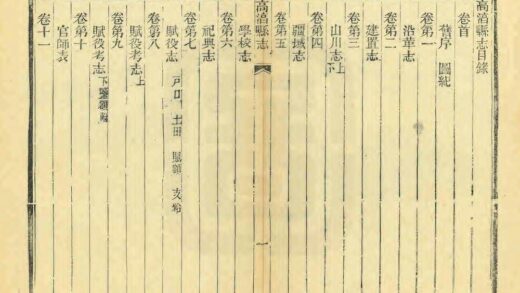 高湻縣志目錄
卷首
舊序 圖紀
卷第一
沿革志
卷第二
建置志
卷第三
山川志上下
卷第四
疆域志
卷第五
高湻縣志 一
學校志
卷第六
祀典志
卷第七
賦役志 戶口 土田 賦額 支給
卷第八
賦役考志上
卷第九
賦役考志下
卷第十
官師表
卷十一